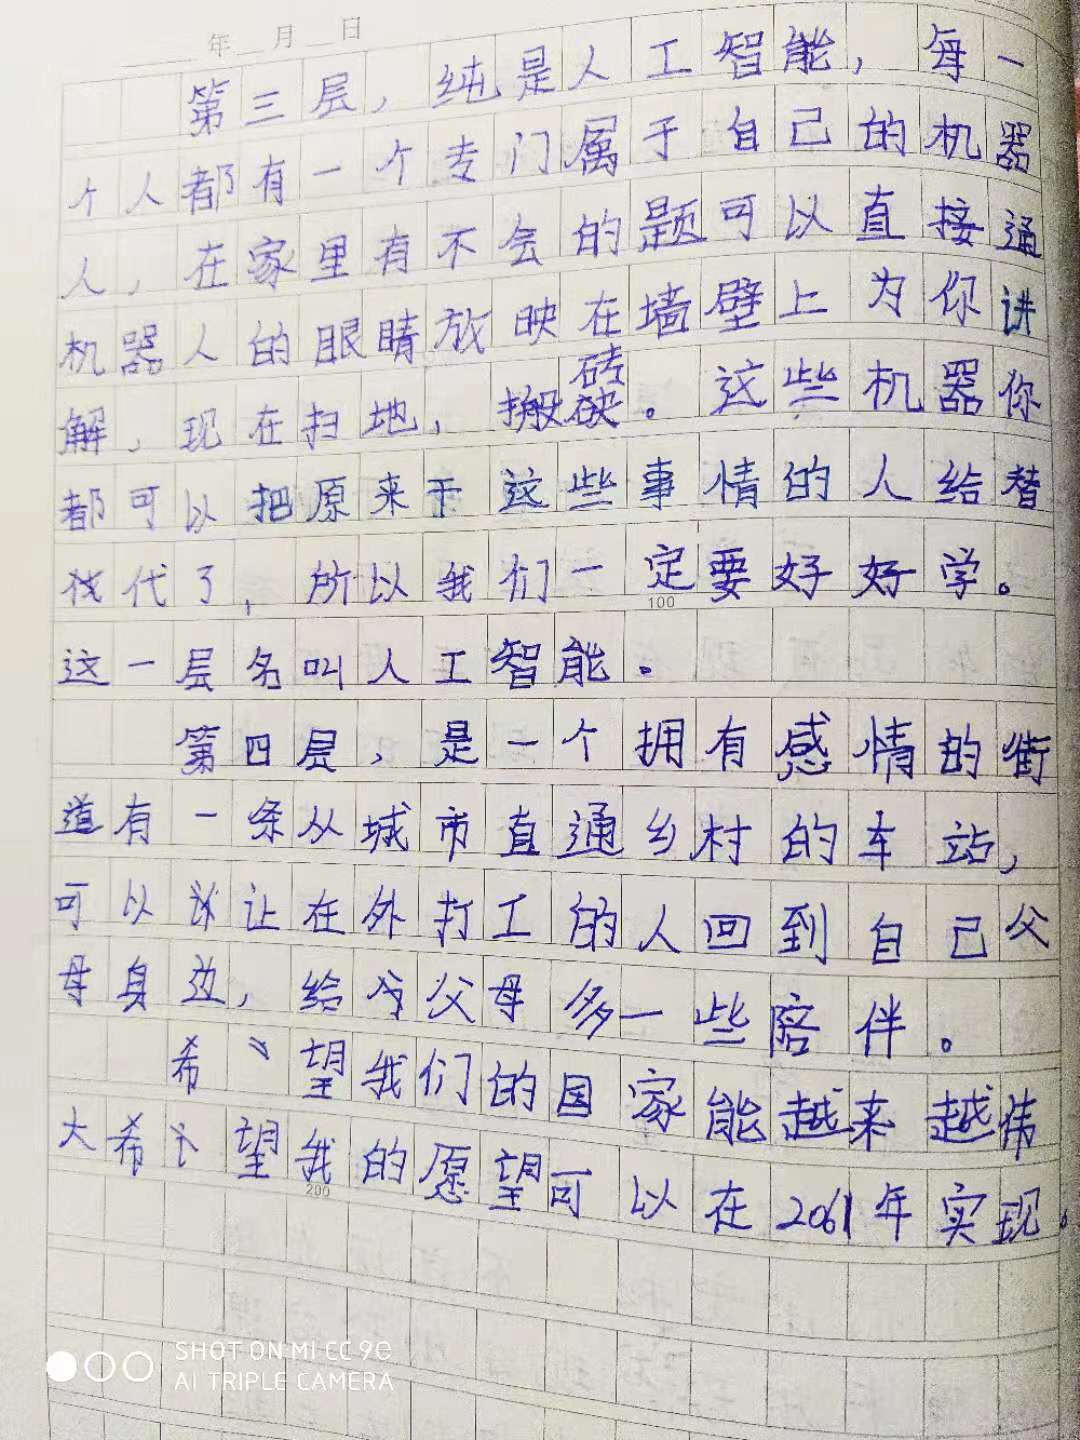 年 月 日
第三层，纯是人工智能，每一
个人都有一个专门属于自己的机器
人，在家里有不会的题可以直接通
机器人的眼睛放映在墙壁上为你讲
解，现在扫地，搬砖。这些机器你
都可以把原来干这些事情的人给替
代了，所以我们一定要好好学。
100
这一层名叫人工智能。
第四层，是一个拥有感情的街
道有一条从城市直通乡村的车站，
可以让在外打工的人回到自己父
母身边，给父母多一些陪伴。
希望我们的国家能越来越伟
大希望我的愿望可以在2061年实现。
200
SHOT ON MI CC 9e
AI TRIPLE CAMERA